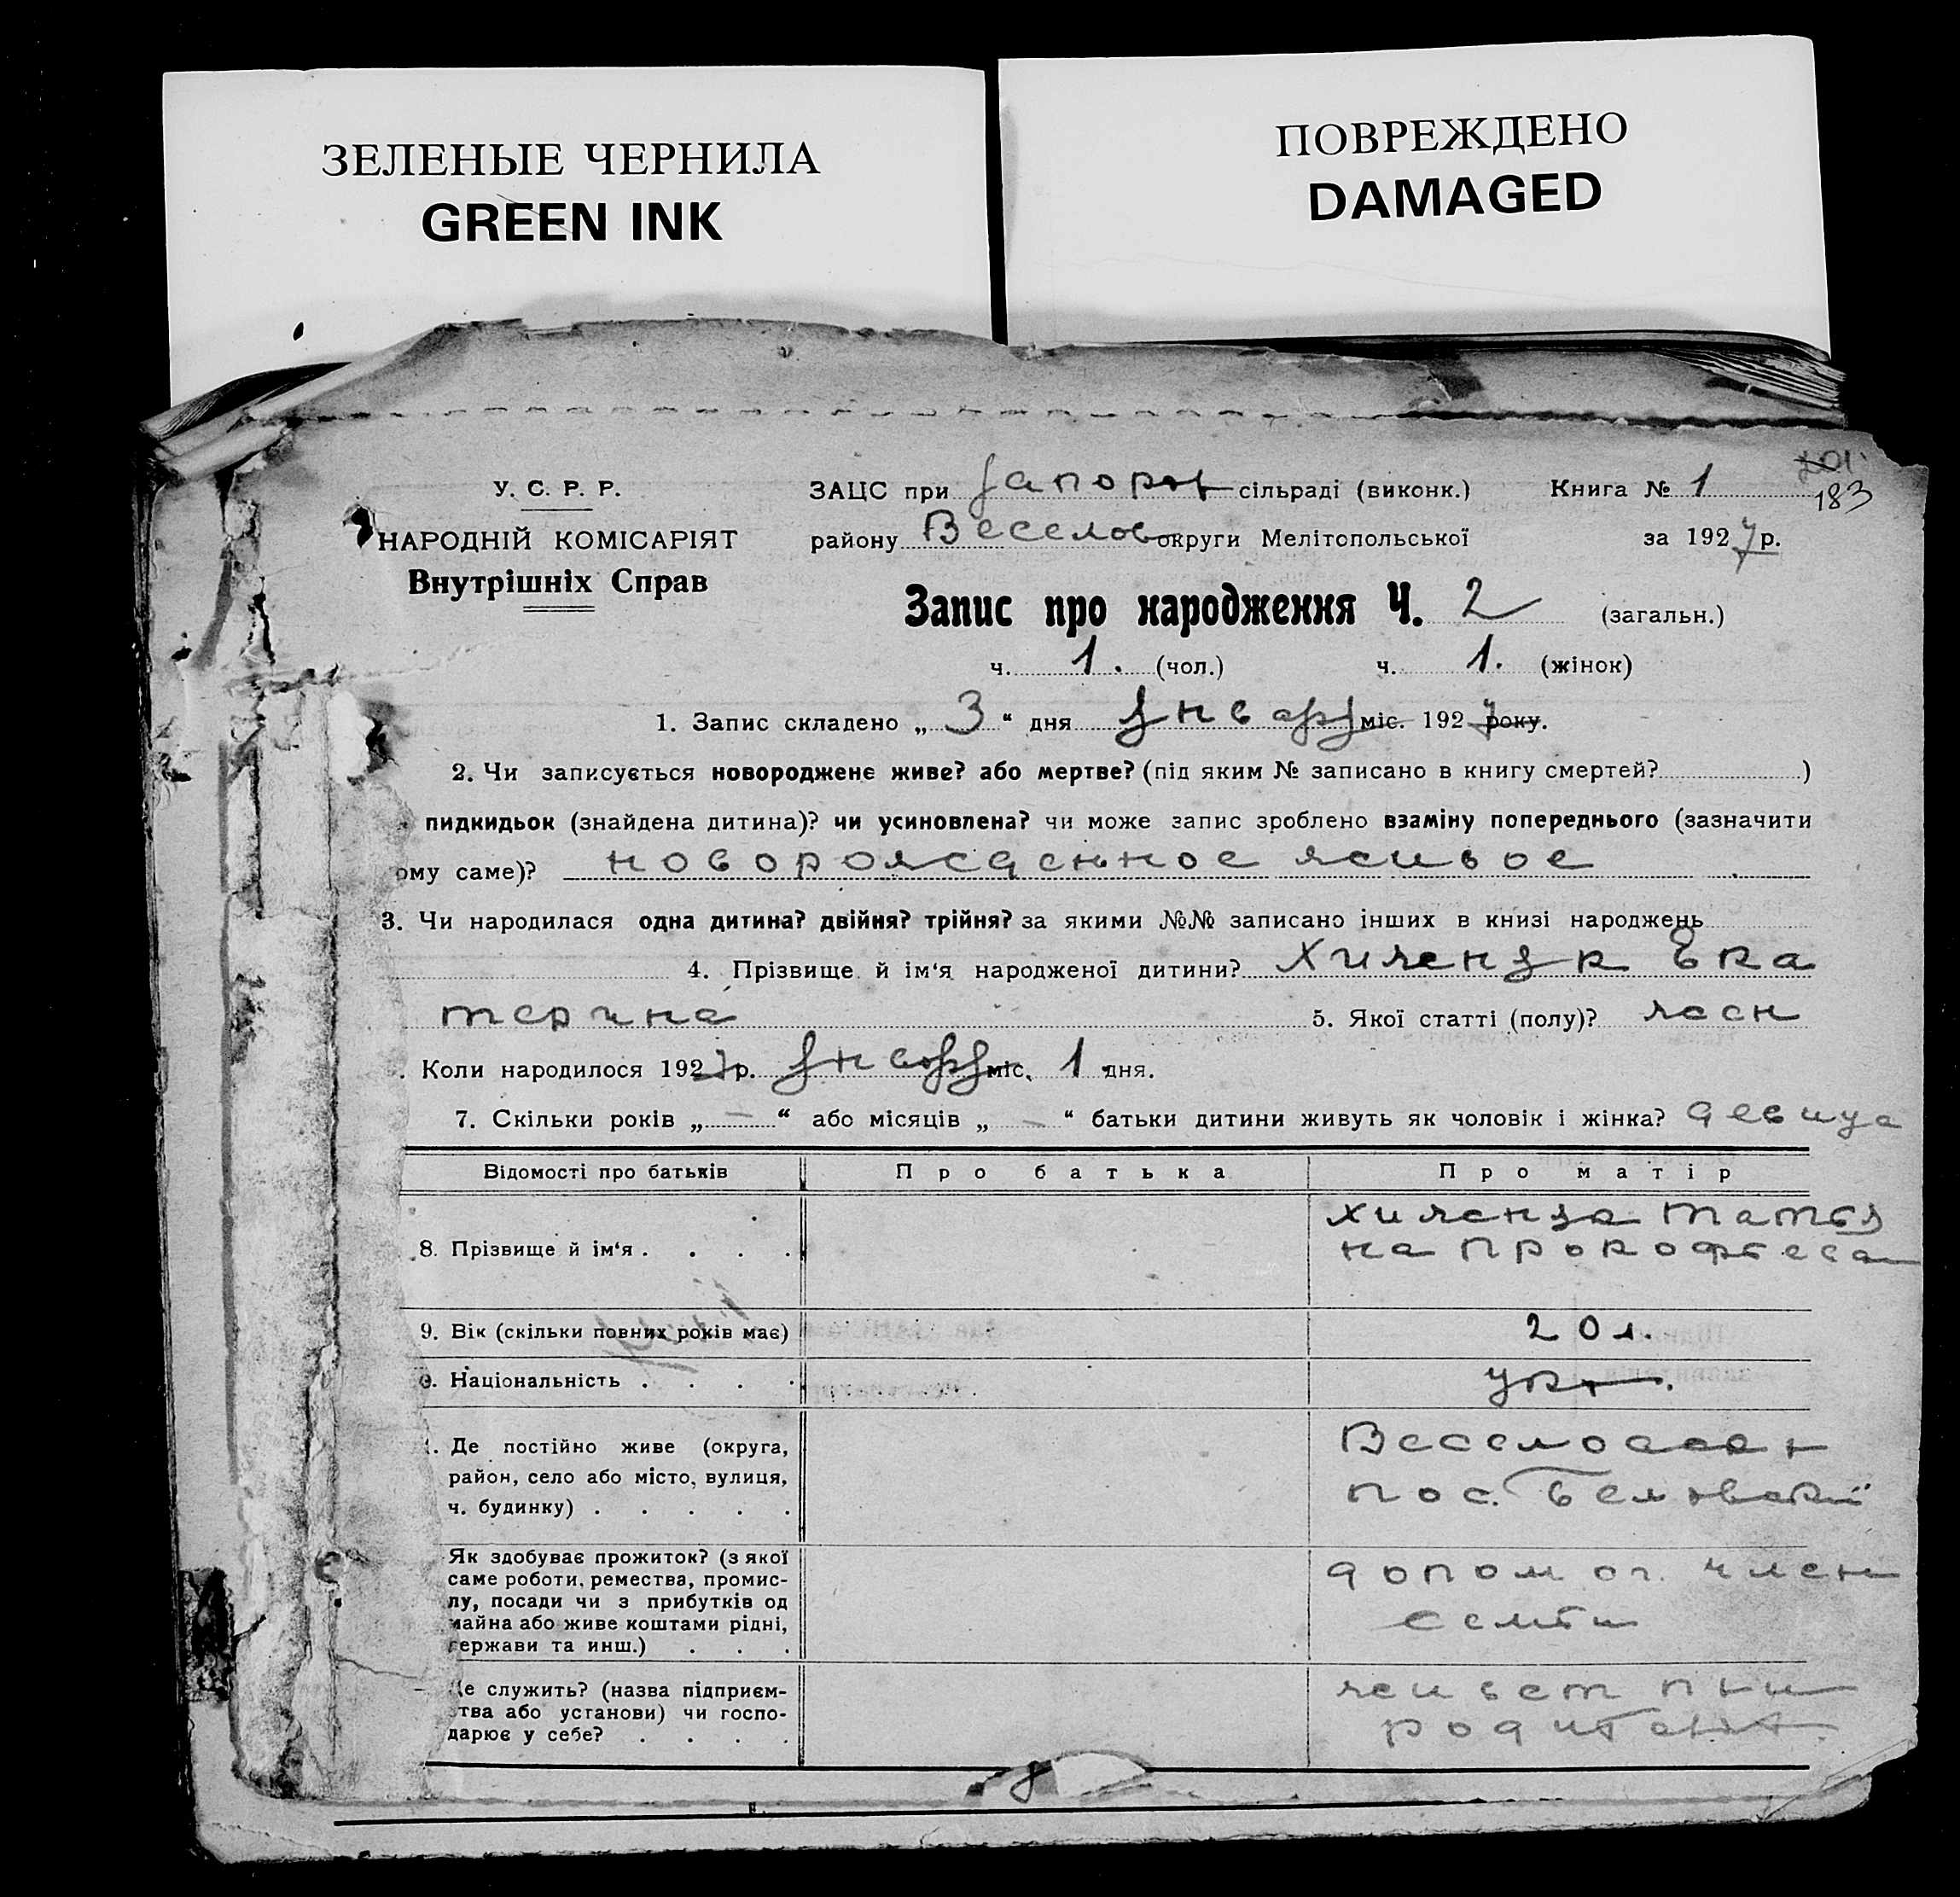 ЗЕЛЕНЫЕ ЧЕРНИЛА
GREEN INK
ПОВРЕЖДЕНО
DAMAGED
У. С. Р. Р.
НАРОДНІЙ КОМІСАРІЯТ
Внутрішніх Справ
183
ЗАЦС при Запорож сільраді (виконк.) Книга № 1
району Веселов округи Мелітопольської за 1927 р.
Запис про народження Ч. 2 (загальн.)
ч. 1. (чол.) ч. 1. (жінок)
1. Запис складено „ 3 “ дня января міс. 1927 року.
2. Чи записується новороджене живе? або мертве? (під яким № записано в книгу смертей? )
пидкидьок (знайдена дитина)? чи усиновлена? чи може запис зроблено взаміну попереднього (зазначити
ому саме)? новорожденное живое
3. Чи народилася одна дитина? двійня? трійня? за якими №№ записано інших в книзі народжень
4. Прізвище й ім‘я народженої дитини? Хиженяк Ека
терина 5. Якої статті (полу)? жен
. Коли народилося 1927 р. января міс. 1 дня.
7. Скільки років „ — “ або місяців „ — “ батьки дитини живуть як чоловік і жінка? девица
Відомості про батьків Про батька Про матір
8. Прізвище й ім‘я . . . . Хиженяк Татья
на Прокофьевна
9. Вік (скільки повних років має) 20 л.
Національність . . . . укр.
Де постійно живе (округа,
район, село або місто, вулиця,
ч. будинку) . . . . .
Веселовск
пос.
Як здобуває прожиток? (з якої
саме роботи, ремества, промис-
лу, посади чи з прибутків од
майна або живе коштами рідні,
держави та инш.) . . .
допомог. член
семьи
Де служить? (назва підприєм-
тва або установи) чи госпо-
дарює у себе? . . . .
живет при
родителях